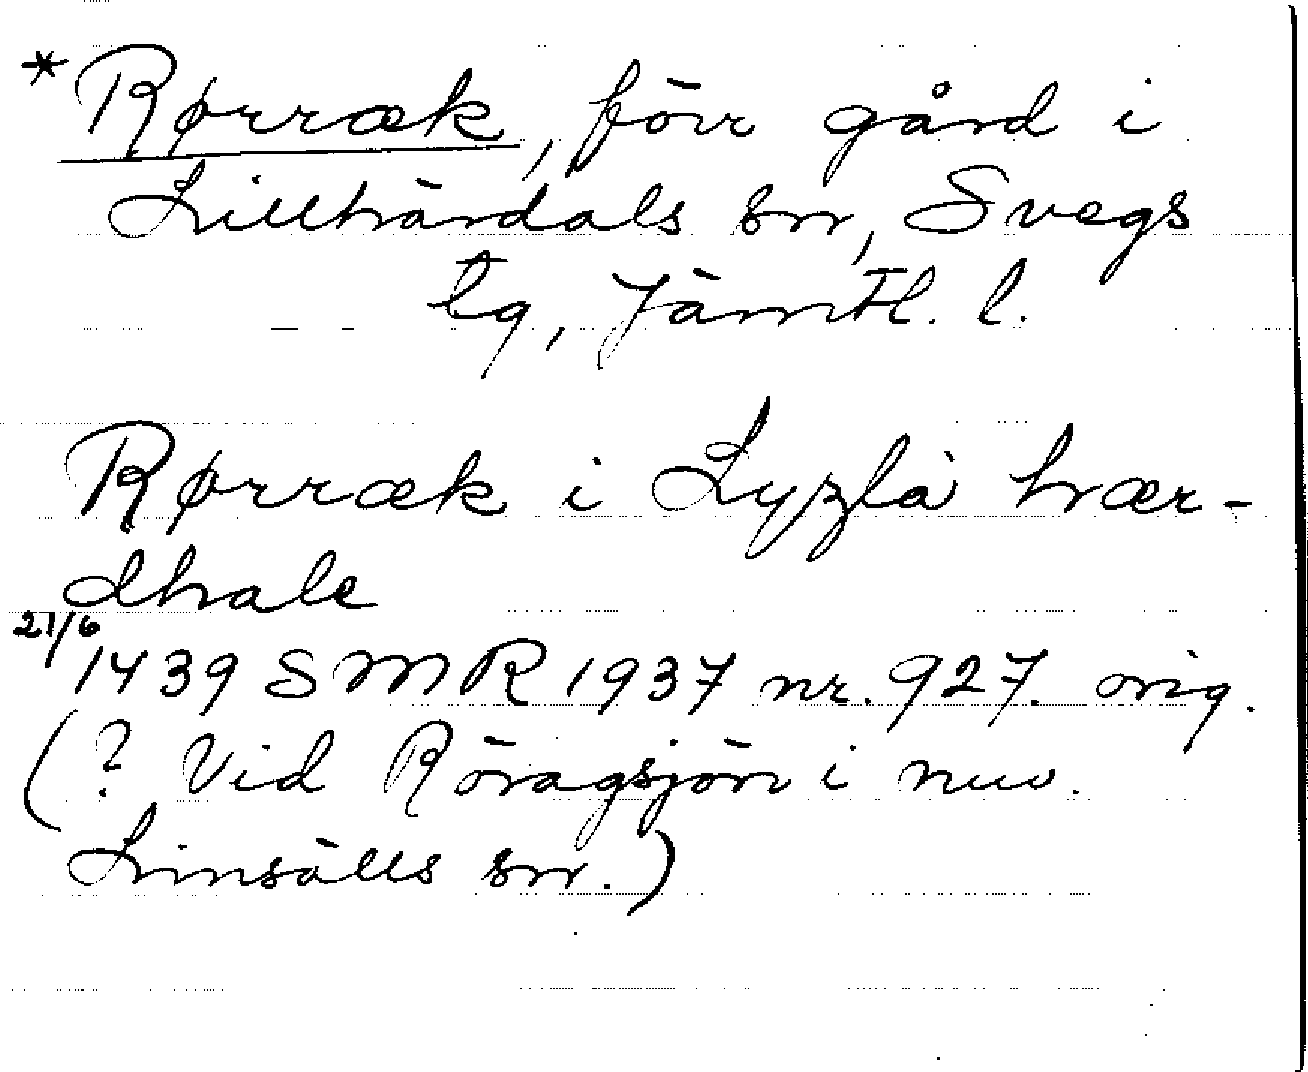 * Rørræk, förr gård i
Lillhärdals sn, Svegs
tg, Jämtl. l.
Rørræk i Lyzla hær-
dhale
21/6 1439 SMR 1937 nr. 927. orig.
(? Vid Röragsjön i nuv.
Linsälls sn.)